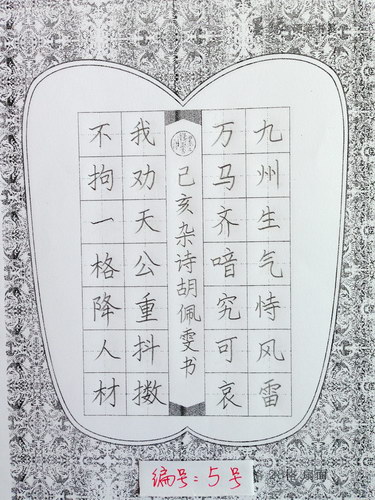 九州生气恃风雷
万马齐喑究可哀
己亥杂诗胡佩雯书
我劝天公重抖擞
不拘一格降人材
编号:5号